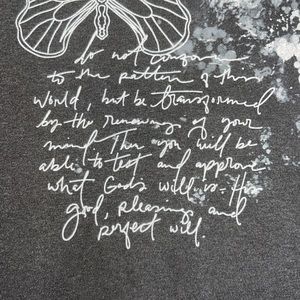 do not conform
to the pattern of this
world, but be transformed
by the renewing of your
mind. Then you will be
able to test and approve
what Gods will is - His
good, pleasing, and
perfect will.